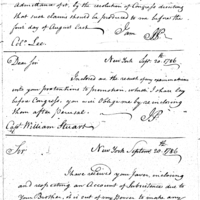 admittance of it, by the resolution of Congress directing
that such claims should be produced to me before the
first day of August last.
I am JP
Col. Lee.
New York Sept. 20th 1786
Dear Sir
Inclosed is the result of my examination
into your pretentions to promotion which I shall lay
before Congress, you will oblige me by returning
them after perusal.
JP
Capt William Stuart
New York September 20th 1786
Sir
I have received your favor, inclosing
and respecting an Account of Subsistence due to
Your Brother, it is out of my Power to make any